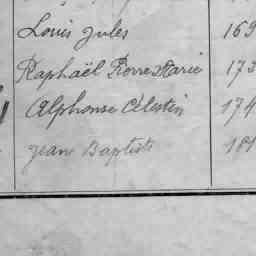 Louis Jules 169
Raphaël Pierre Marie 173
Alphonse Célestin 174
Jean Baptiste 181